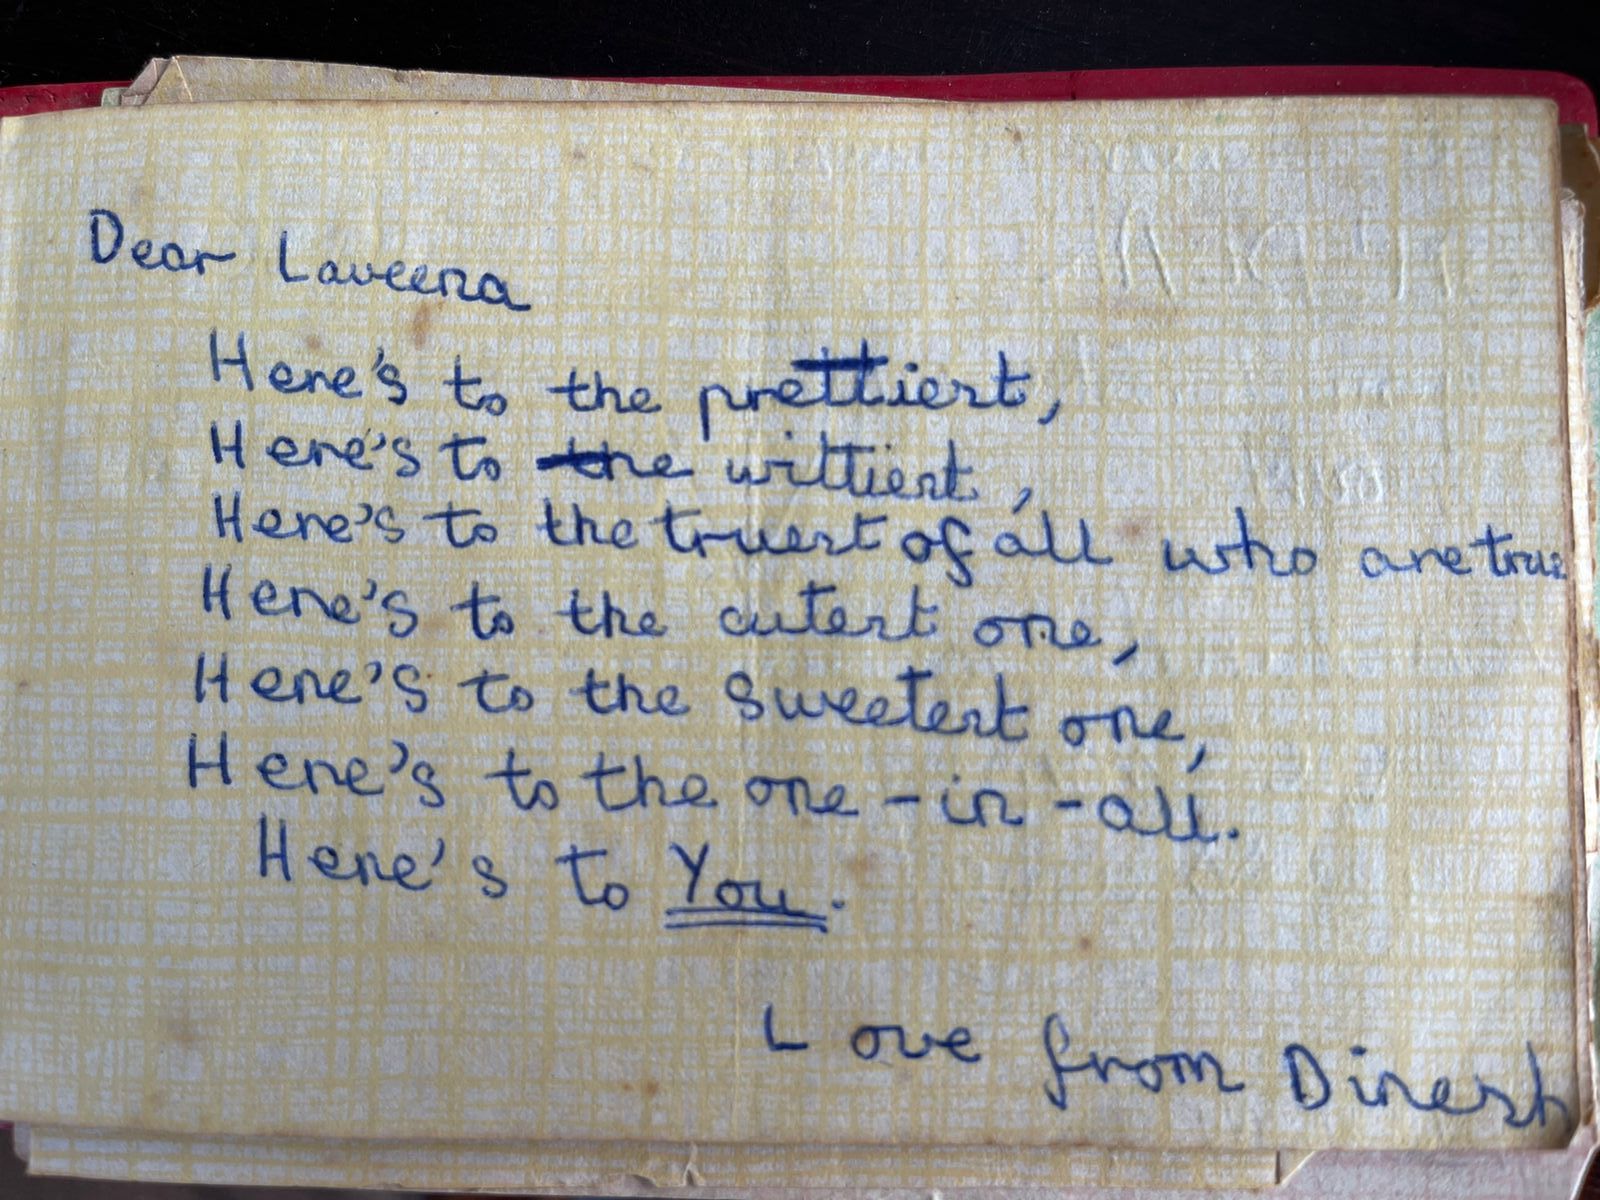 Dear Laveena
Here's to the prettiest,
Here's to the wittiest,
Here's to the truest of all who are true
Here's to the cutest one,
Here's to the sweetest one,
Here's to the one-in-all.
Here's to You.
Love from Dinesh